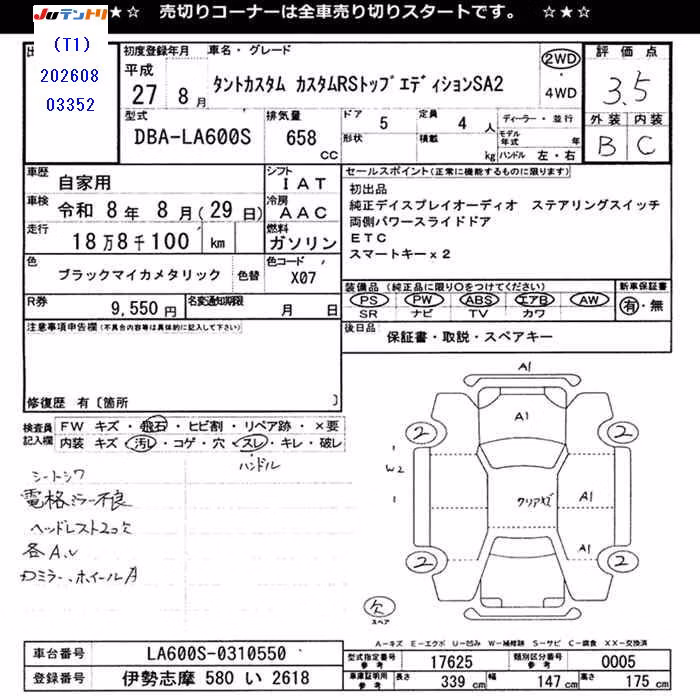 ☆★☆ 売切りコーナーは全車売り切りスタートです。 ☆★☆
JUテントリ
(T1)
202608
03352
初度登録年月
平成
27 8 月
車名・グレード
タントカスタム カスタムRSトップエディションSA2
2WD
・
4WD
評価点
3.5
外装 内装
B C
型式
DBA-LA600S
排気量
658 CC
ドア 5
形状
定員 4 人
積載 kg
ディーラー・並行
モデル年式 年
ハンドル 左・右
車歴
自家用
シフト
IAT
車検
令和 8年 8月(29日)
冷房
AAC
走行
18万8千100 km
燃料
ガソリン
色
ブラックマイカメタリック
色替
色コード
X07
R券
9,550円
名変通知期限
月 日
セールスポイント(正常に機能するものに限ります)
初出品
純正ディスプレイオーディオ ステアリングスイッチ
両側パワースライドドア
ETC
スマートキーx2
装備品(純正品に限り○をつけてください)
PS PW ABS エアB AW
SR ナビ TV カワ
新車保証書
有・無
後日品
保証書・取説・スペアキー
注意事項申告欄(不具合内容等は具体的に記入して下さい)
修復歴 有〔箇所 〕
検査員記入欄
FW キズ・飛石・ヒビ割・リペア跡・×要
内装 キズ・汚れ・コゲ・穴・スレ・キレ・破レ
ハンドル
シートシワ
電格ミラー不良
ヘッドレスト2コ欠
各A.U
ドミラー、ホイールA
A1
A1
2 2
W2
クリアハゲ
A1
A1
2 2
欠
スペア
A-キズ E-エクボ U-凹み W-補修跡 S-サビ C-腐食 XX-交換済
車台番号
LA600S-0310550
登録番号
伊勢志摩 580 い 2618
型式指定番号 参考
17625
類別区分番号 参考
0005
車庫証明用 参考
長さ 339 cm
幅 147 cm
高さ 175 cm